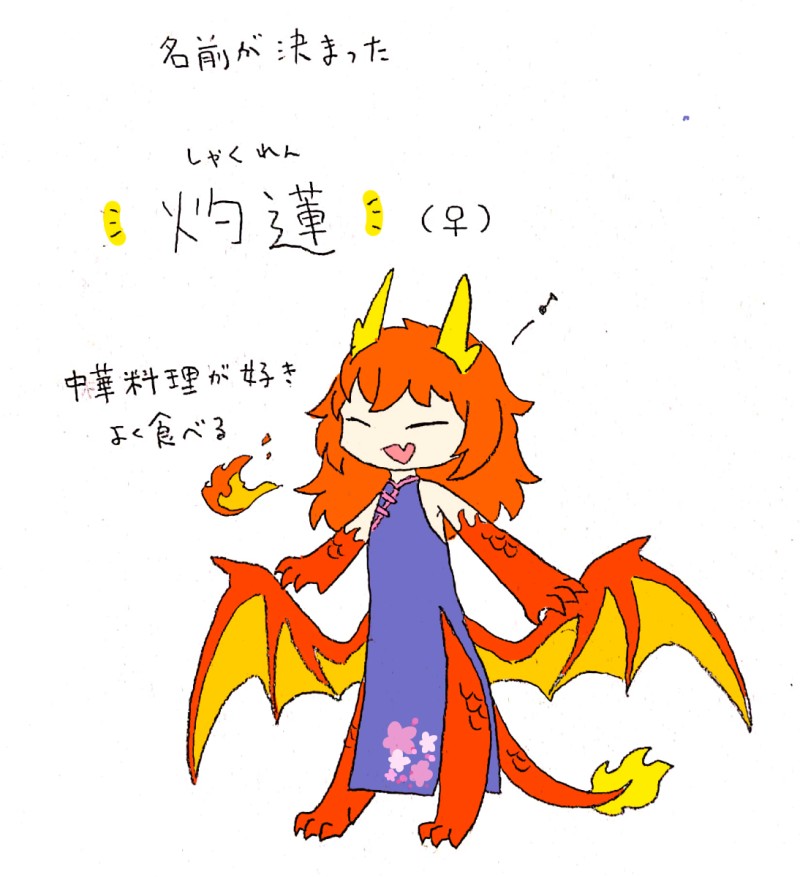 名前が決まった
しゃくれん
灼蓮 (♀)
中華料理が好き
よく食べる